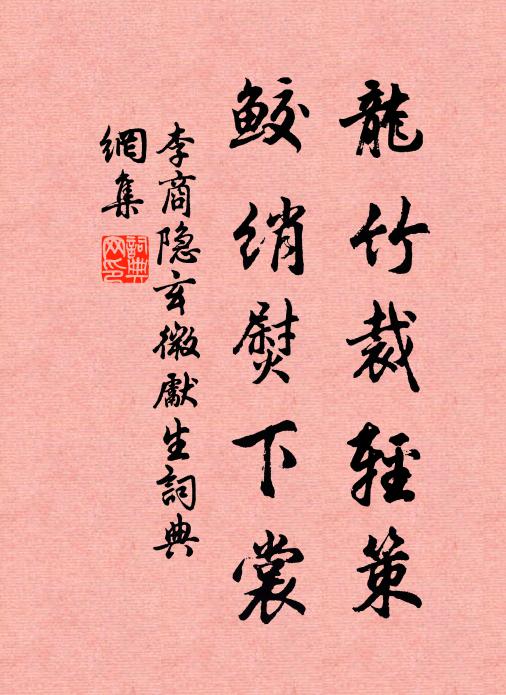 龍竹裁輕策
鮫綃熨下裳
李商隐玄微獻生詞典
網集
詞典
网印